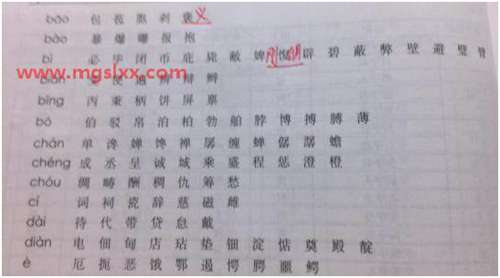 bāo 包 苞 胞 剥 褒 义
bào 暴 爆 曝 报 抱
bì 必 毕 闭 币 庇 毙 敝 婢 愎 辟 碧 蔽 弊 壁 避 璧 臂
www.mgslxx.com
遍 辨 辩 辫
bǐng 丙 秉 柄 饼 屏 禀
bó 伯 驳 帛 泊 柏 勃 舶 脖 博 搏 膊 薄
chán 单 谗 婵 馋 禅 孱 缠 蝉 潺 蟾
chéng 成 丞 呈 诚 城 乘 盛 程 惩 澄 橙
chóu 惆 畴 酬 稠 仇 筹 愁
cí 词 祠 瓷 辞 慈 磁 雌
dài 待 代 带 贷 怠 戴
diàn 电 佃 甸 店 玷 垫 钿 淀 惦 奠 殿 靛
è 厄 扼 恶 饿 鄂 遏 愕 腭 噩 鳄